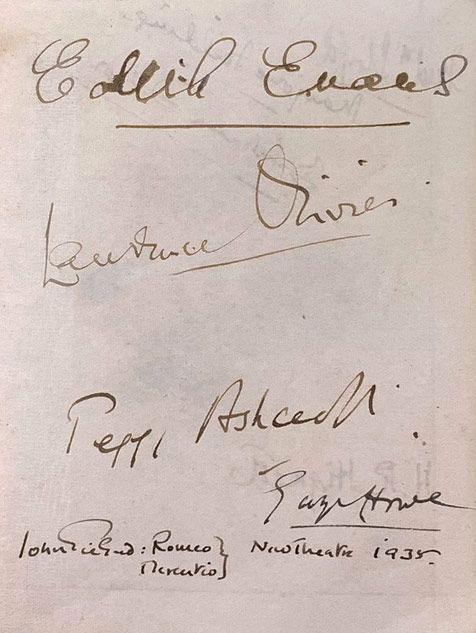 Edith Evans
Laurence Olivier
Peggy Ashcroft
George Howe
John Gielgud : Romeo } New Theatre 1935.
Mercutio }